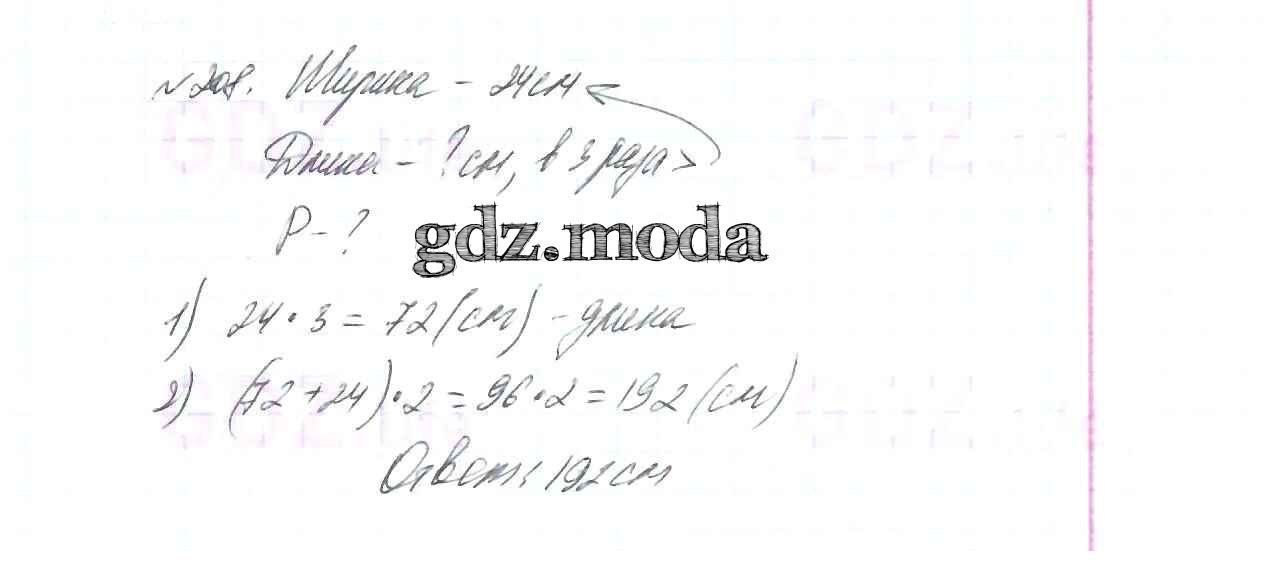 №208. Ширина – 24см
Длина – ?см, в 3 раза >
P – ?
gdz.moda
1) 24·3=72(см) – длина
2) (72+24)·2=96·2=192(см)
Ответ: 192см